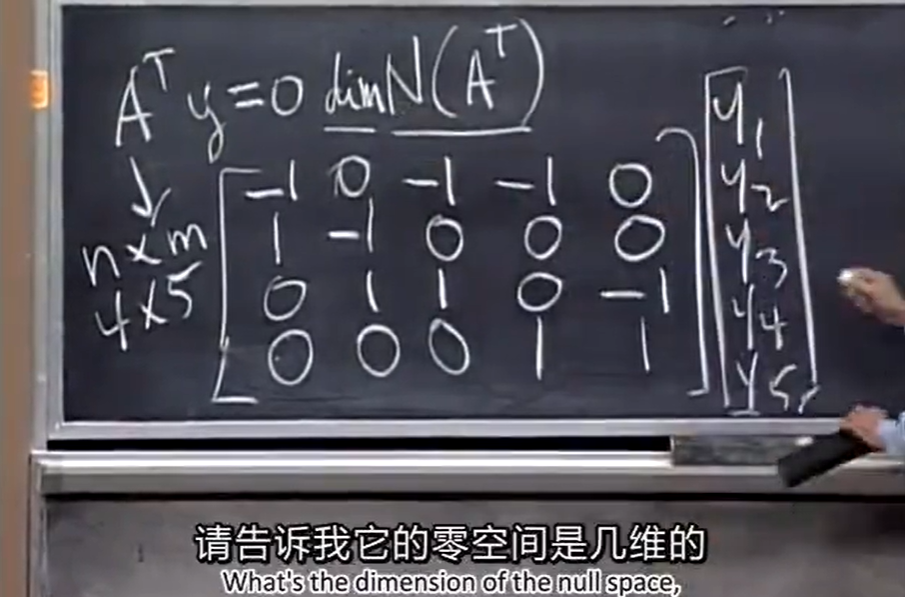 Aᵀy=0 dimN(Aᵀ)
↓
n×m
4×5
-1 0 -1 -1 0
1 -1 0 0 0
0 1 1 0 -1
0 0 0 1 1
y₁
y₂
y₃
y₄
y₅
请告诉我它的零空间是几维的
What's the dimension of the null space,